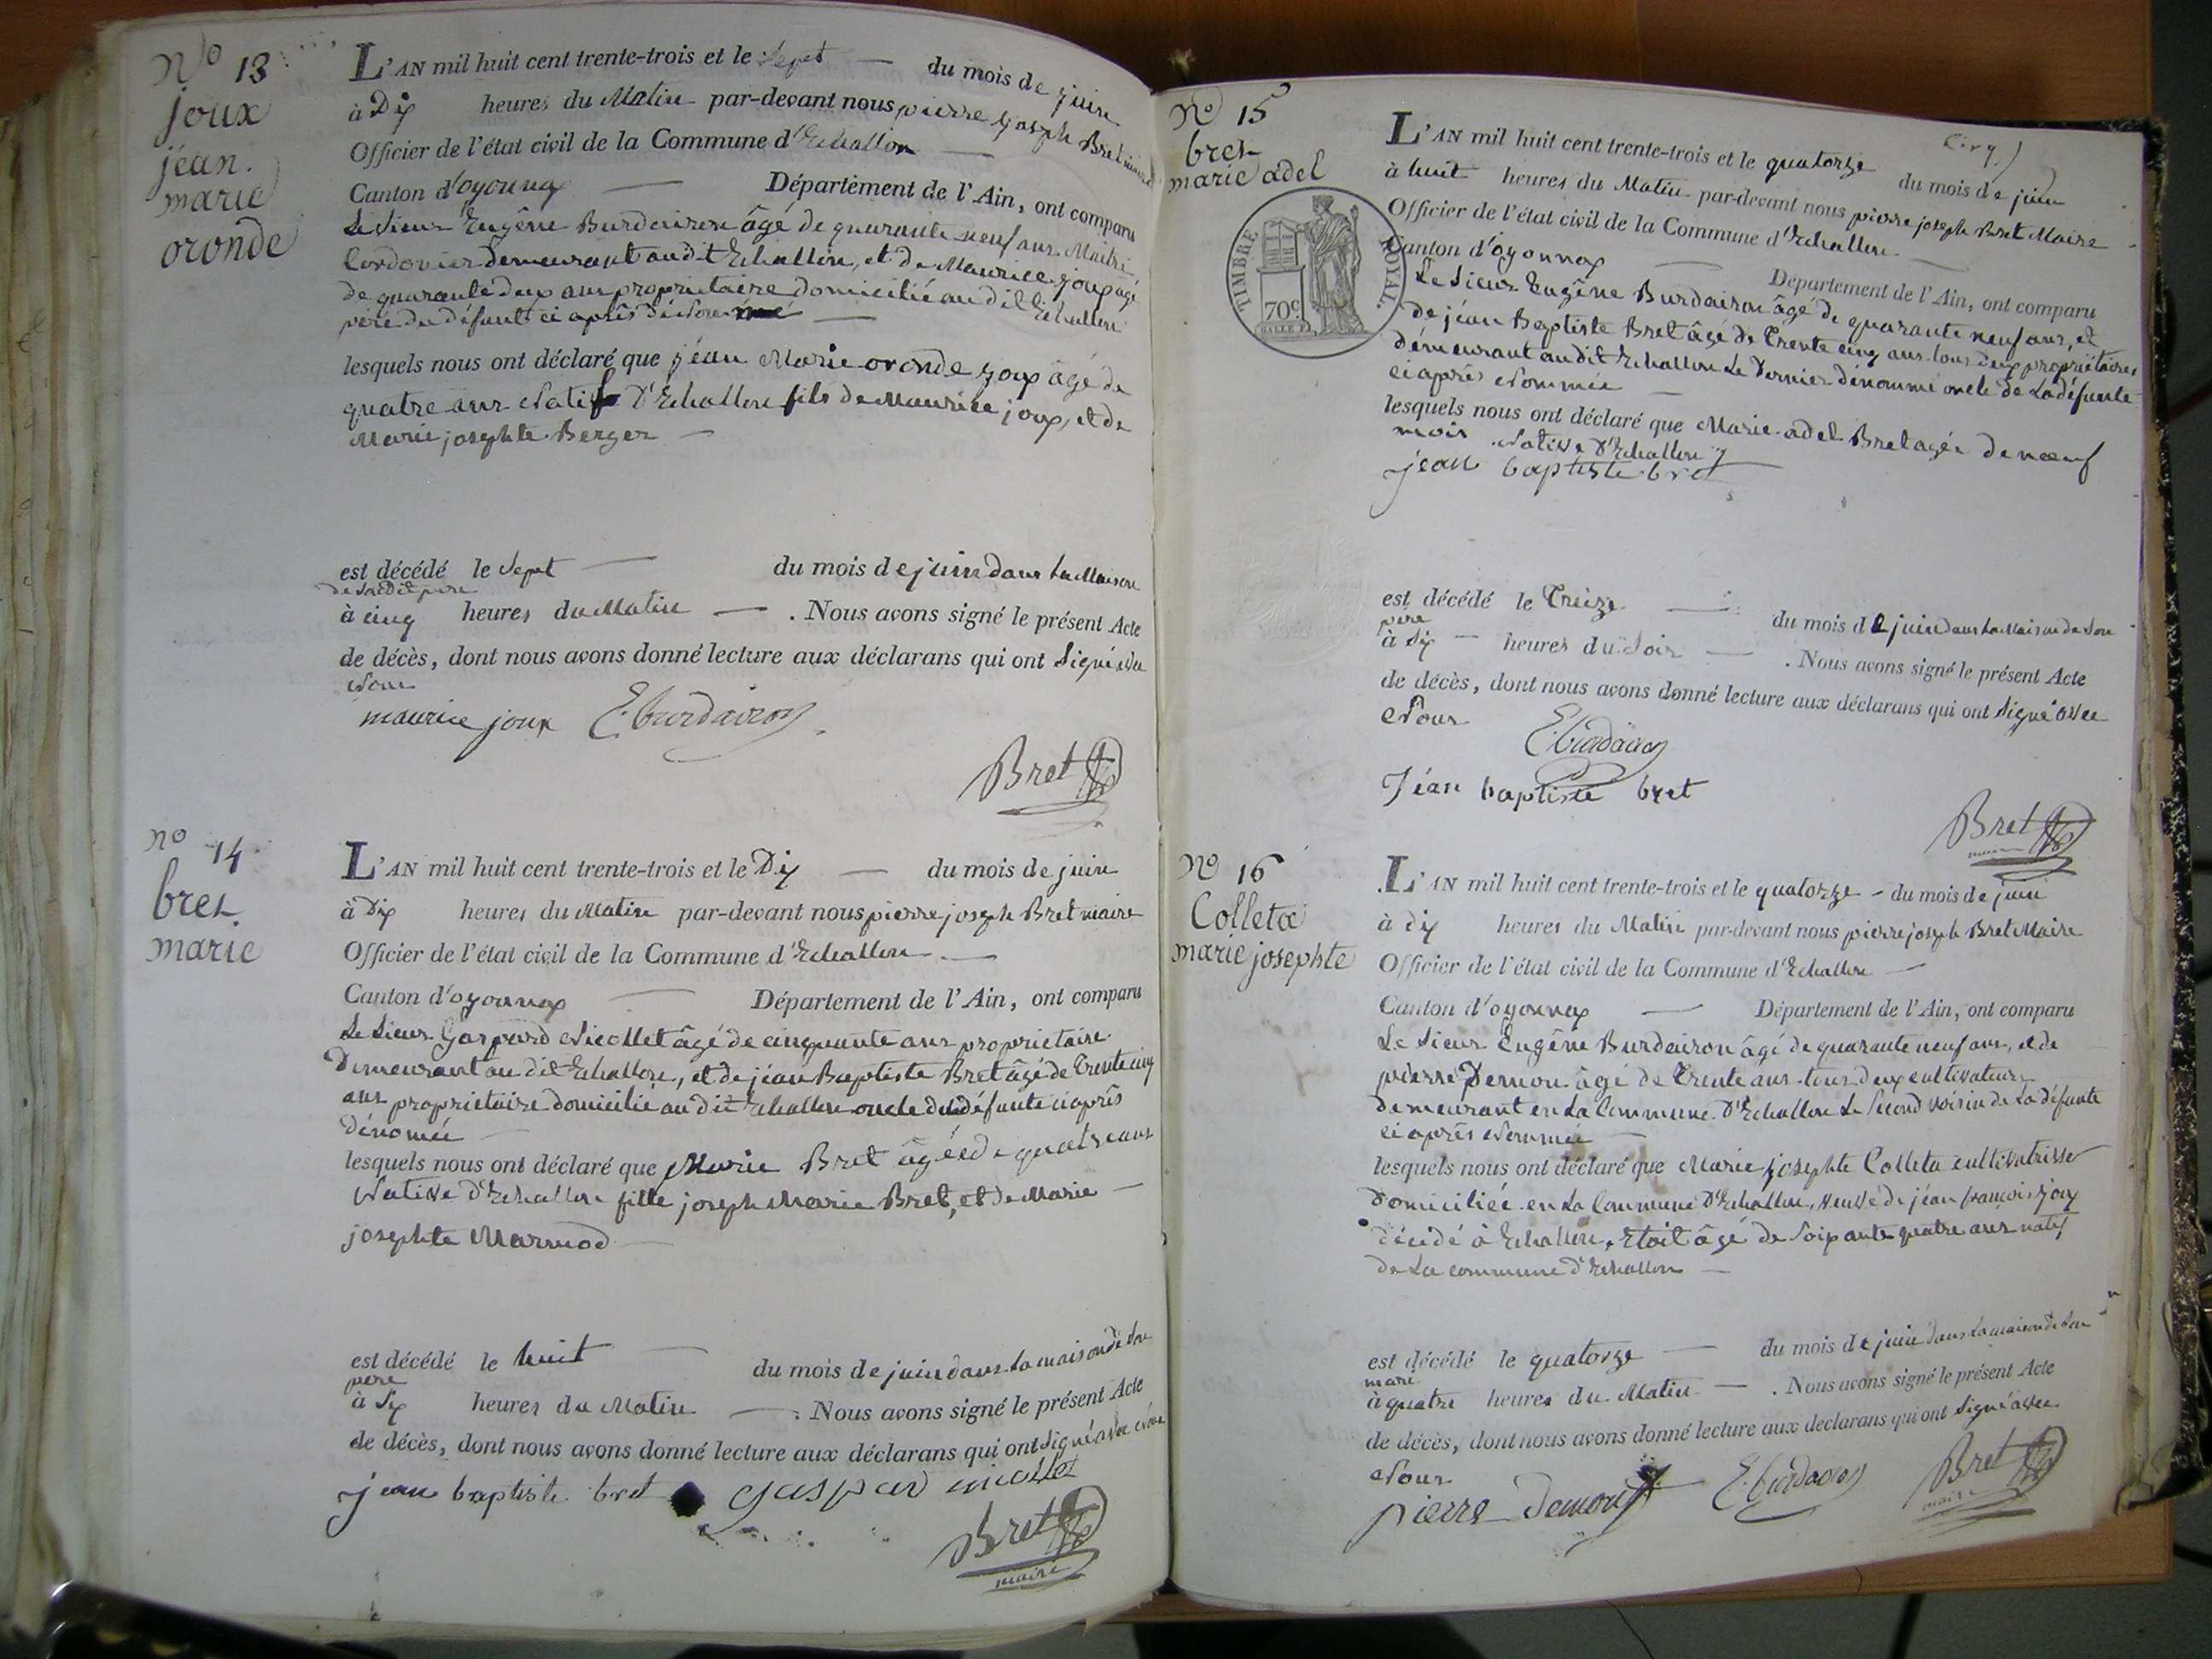 No 13
joux
jean.
marie
oronde
L'AN mil huit cent trente-trois et le Sept du mois de juin
à Dix heures du Matin par-devant nous pierre joseph Bret maire
Officier de l'état civil de la Commune d'Echallon
Canton d'oyonnax Département de l'Ain, ont comparu
Le Sieur Eugêne Burdairon âgé de quarante neuf ans Maitre
Cordonier demeurant audit Echallon, et de Maurice joux agé
de quarante deux ans propriétaire domicilié au dit Echallon
père du défunt ci après
lesquels nous ont déclaré que jéan Marie oronde joux âgé de
quatre ans Natif D'Echallon fils de Maurice joux, et de
Marie josephte Berger
est décédé le Sept du mois de juin dans la Maison
de Sondit pere
à cinq heures du Matin . Nous avons signé le présent Acte
de décès, dont nous avons donné lecture aux déclarans qui ont Signé avec
Nous
maurice joux E. burdairon
Bret
no 14
bret
marie
L'AN mil huit cent trente-trois et le Dix du mois de juin
à Dix heures du Matin par-devant nous pierre joseph Bret maire
Officier de l'état civil de la Commune d'Echallon
Canton d'oyonnax Département de l'Ain, ont comparu
Le Sieur Gaspard Nicollet âgé de cinquante ans propriétaire
Demeurant au dit Echallon, et de jéan Baptiste Bret âgé de Trente cinq
ans propriétaire domicilié au dit Echallon oncle de la défunte ci après
dénomée
lesquels nous ont déclaré que Marie Bret âgéé de quatre ans
Native d'Echallon fille joseph Marie Bret, et de Marie
josephte Marmod
est décédé le huit du mois de juin dans la maison de Son
pere
à Six heures du Matin . Nous avons signé le présent Acte
de décès, dont nous avons donné lecture aux déclarans qui ont Signé avec Nous
jean baptiste bret gaspard nicollet
Bret
maire
No 15
bret
marie adel
TIMBRE ROYAL.
70c
L'AN mil huit cent trente-trois et le quatorze du mois de juin
à huit heures du Matin par-devant nous pierre joseph Bret Maire
Officier de l'état civil de la Commune d'Echallon
Canton d'oyonnax Département de l'Ain, ont comparu
Le Sieur Eugêne Burdairon âgé de quarante neuf ans, et
de jéan Baptiste Bret âgé de Trente cinq ans tous deux propriétaires
démeurant au dit Echallon Le Dernier dénommé oncle de La défunte
ci après Nommée
lesquels nous ont déclaré que Marie adel Bret agée de nœuf
mois Native D'Echallon
jean baptiste bret
est décédé le Treize du mois de juin dans la Maison de Son
père
à Six heures du Soir . Nous avons signé le présent Acte
de décès, dont nous avons donné lecture aux déclarans qui ont Signé avec
Nous
E. burdairon
Jéan baptiste bret
Bret
maire
No 16
Colleta
marie josephte
L'AN mil huit cent trente-trois et le quatorze du mois de juin
à dix heures du Matin par-devant nous pierre joseph Bret Maire
Officier de l'état civil de la Commune d'Echallon
Canton d'oyonnax Département de l'Ain, ont comparu
Le Sieur Eugêne Burdairon âgé de quarante neuf ans, et de
pierre Demon âgé de Trente ans tous deux cultivateurs
demeurant en La Commune D'Echallon Le Second voisin de La défunte
ci après Nommée
lesquels nous ont déclaré que Marie josephte Colleta cultivatrisse
Domiciliée en La Commune D'Echallon, veuve de jéan francois joux
décédé à Echallon, Etoit âgé de Soixante quatre ans natif
de La commune d'Echallon
est décédé le quatorze du mois de juin dans la maison de Son
mari
à quatre heures du Matin . Nous avons signé le présent Acte
de décès, dont nous avons donné lecture aux déclarans qui ont Signé avec
Nous
pierre Demon E. burdairon Bret
maire